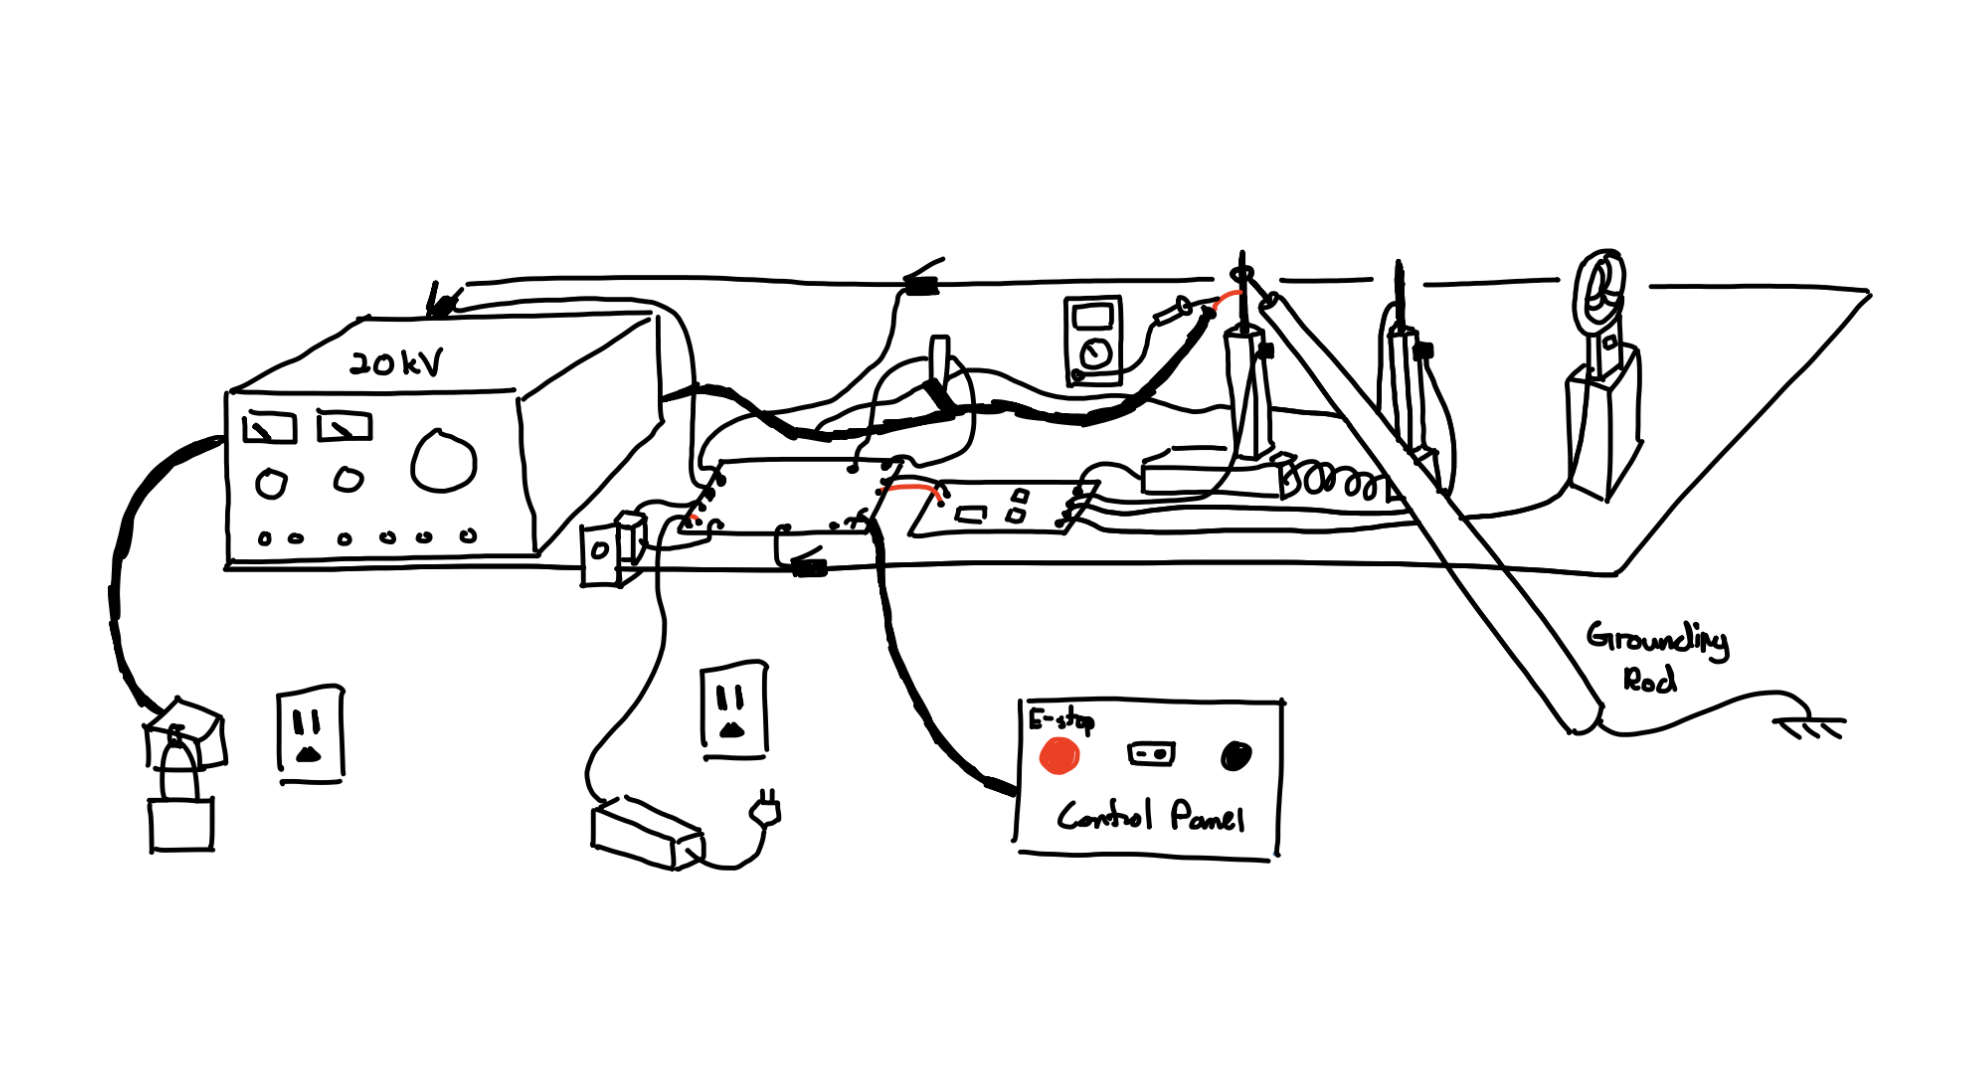 20kV
Grounding
Rod
E-stop
Control Panel